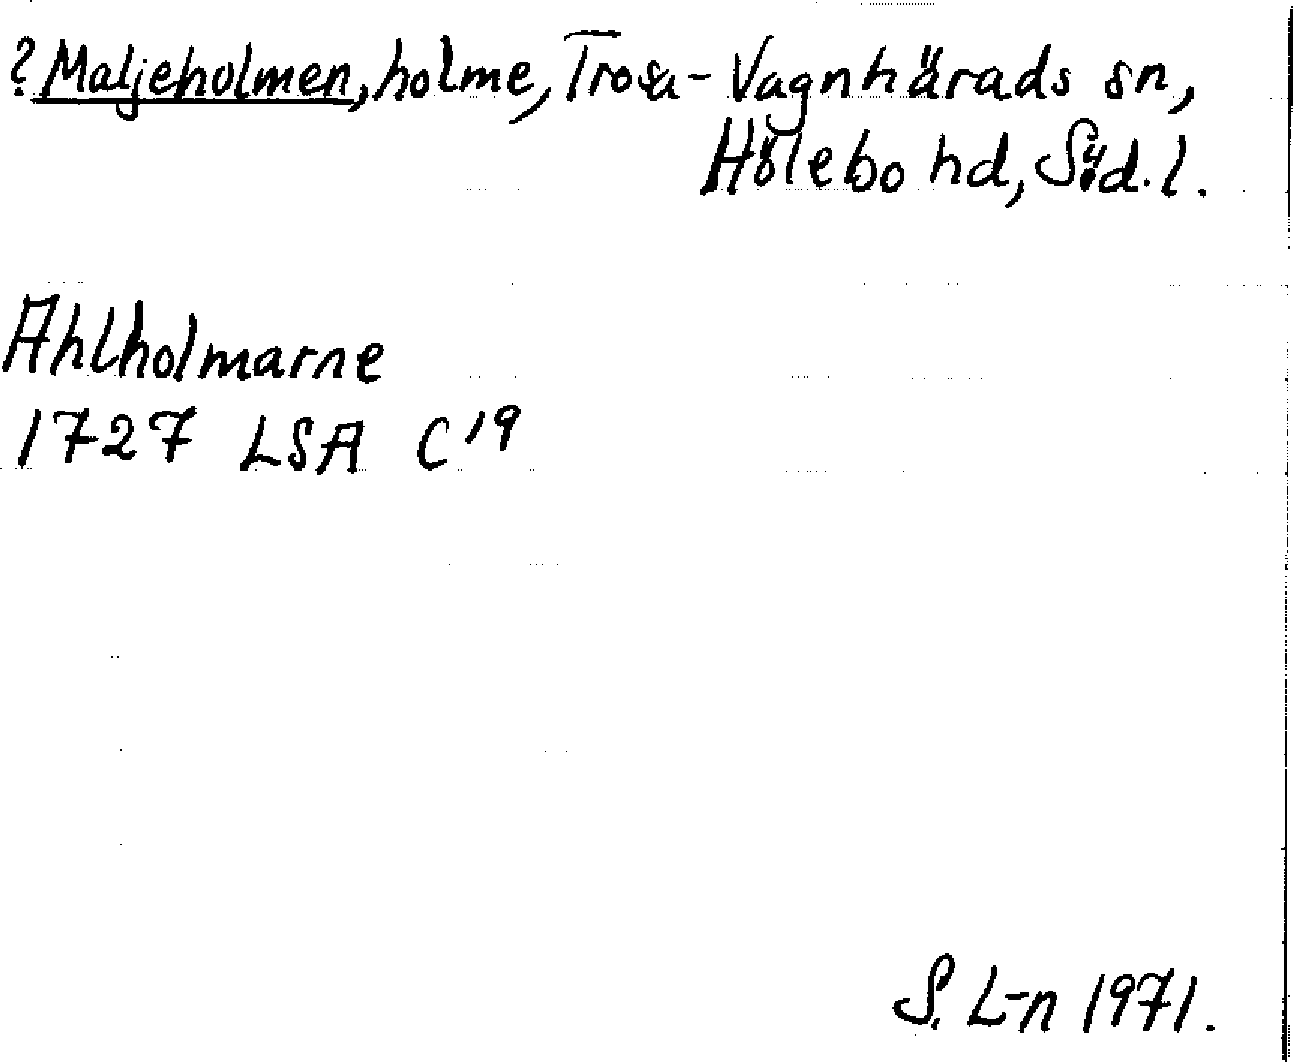 ? Maljeholmen, holme, Trosa-Vagnhärads sn,
Hölebo hd, Söd. l.
Ahlholmarne
1727 LSA C 19
S. L-n 1971.